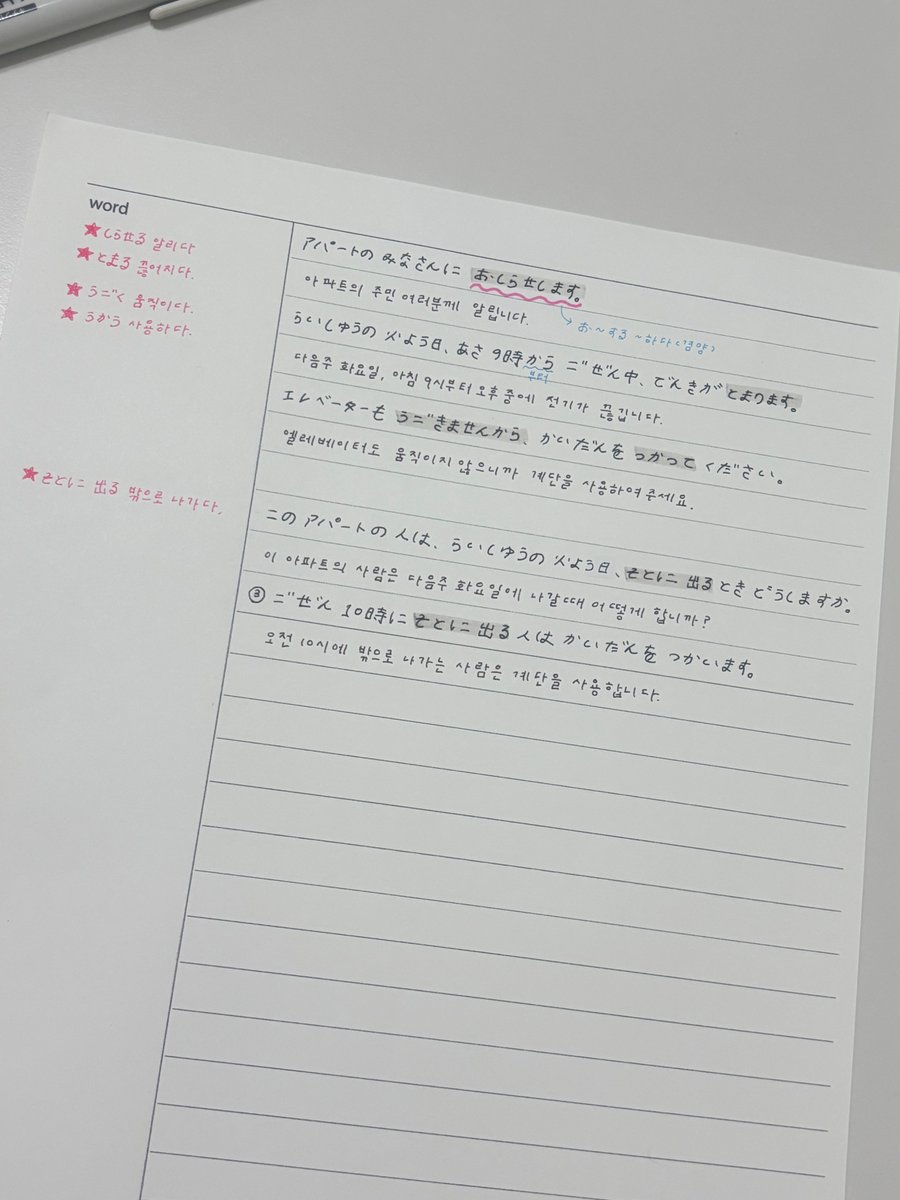 word
★しらせる 알리다
★とまる 끊어지다.
★うごく 움직이다.
★つかう 사용하다.
★そとに 出る 밖으로 나가다.
アパートの みなさんに おしらせします。
아파트의 주민 여러분께 알립니다.
お~する ~하다(겸양)
らいしゅうの 火よう日、あさ 9時から ごぜん中、でんきが とまります。
부터
다음주 화요일, 아침 9시부터 오후 중에 전기가 끊깁니다.
エレベーターも うごきませんから、かいだんを つかって ください。
엘레베이터도 움직이지 않으니까 계단을 사용하여 주세요.
この アパートの 人は、らいしゅうの 火よう日、そとに 出る とき どうしますか。
이 아파트의 사람은 다음주 화요일에 나갈때 어떻게 합니까?
③ ごぜん 10時に そとに 出る 人は かいだんを つかいます。
오전 10시에 밖으로 나가는 사람은 계단을 사용합니다.